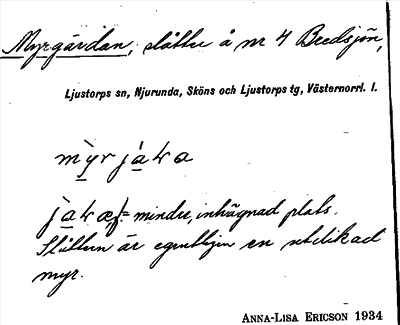 Myrgärdan, slåtter å nr 4 Bredsjön,
Ljustorps sn, Njurunda, Sköns och Ljustorps tg, Västernorrl. l.
mỳrjàꞭa
= mindre, inhägnad plats.
Slåttern är egentligen en utdikad
myr.
ANNA-LISA ERICSON 1934